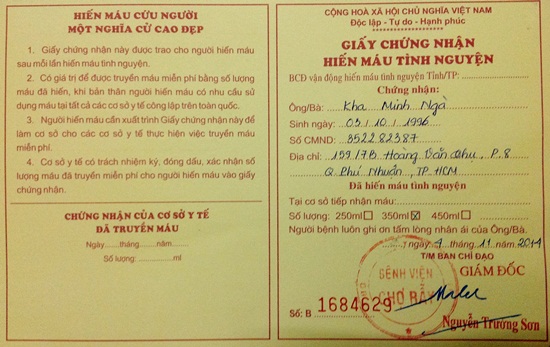 HIẾN MÁU CỨU NGƯỜI
MỘT NGHĨA CỬ CAO ĐẸP
1. Giấy chứng nhận này được trao cho người hiến máu
sau mỗi lần hiến máu tình nguyện.
2. Có giá trị để được truyền máu miễn phí bằng số lượng
máu đã hiến, khi bản thân người hiến máu có nhu cầu sử
dụng máu tại tất cả các cơ sở y tế công lập trên toàn quốc.
3. Người hiến máu cần xuất trình Giấy chứng nhận này để
làm cơ sở cho các cơ sở y tế thực hiện việc truyền máu
miễn phí.
4. Cơ sở y tế có trách nhiệm ký, đóng dấu, xác nhận số
lượng máu đã truyền miễn phí cho người hiến máu vào giấy
chứng nhận.
CHỨNG NHẬN CỦA CƠ SỞ Y TẾ
ĐÃ TRUYỀN MÁU
Ngày......tháng......năm......
Số lượng:....................ml
CỘNG HOÀ XÃ HỘI CHỦ NGHĨA VIỆT NAM
Độc lập - Tự do - Hạnh phúc
GIẤY CHỨNG NHẬN
HIẾN MÁU TÌNH NGUYỆN
BCĐ vận động hiến máu tình nguyện Tỉnh/TP:
Chứng nhận:
Ông/Bà: Kha Minh Ngà
Sinh ngày: 03/10/1996
Số CMND: 352282387
Địa chỉ: 159/7B Hoàng Văn Thụ, P.8
Q. Phú Nhuận, TP.HCM
Đã hiến máu tình nguyện
Tại cơ sở tiếp nhận máu:
Số lượng: 250ml☐ 350ml☒ 450ml☐
Người bệnh luôn ghi ơn tấm lòng nhân ái của Ông/Bà.
ngày 4 tháng 11 năm 2014
T/M BAN CHỈ ĐẠO
GIÁM ĐỐC
BỆNH VIỆN
CHỢ RẪY
Số: B 1684629
Nguyễn Trường Sơn